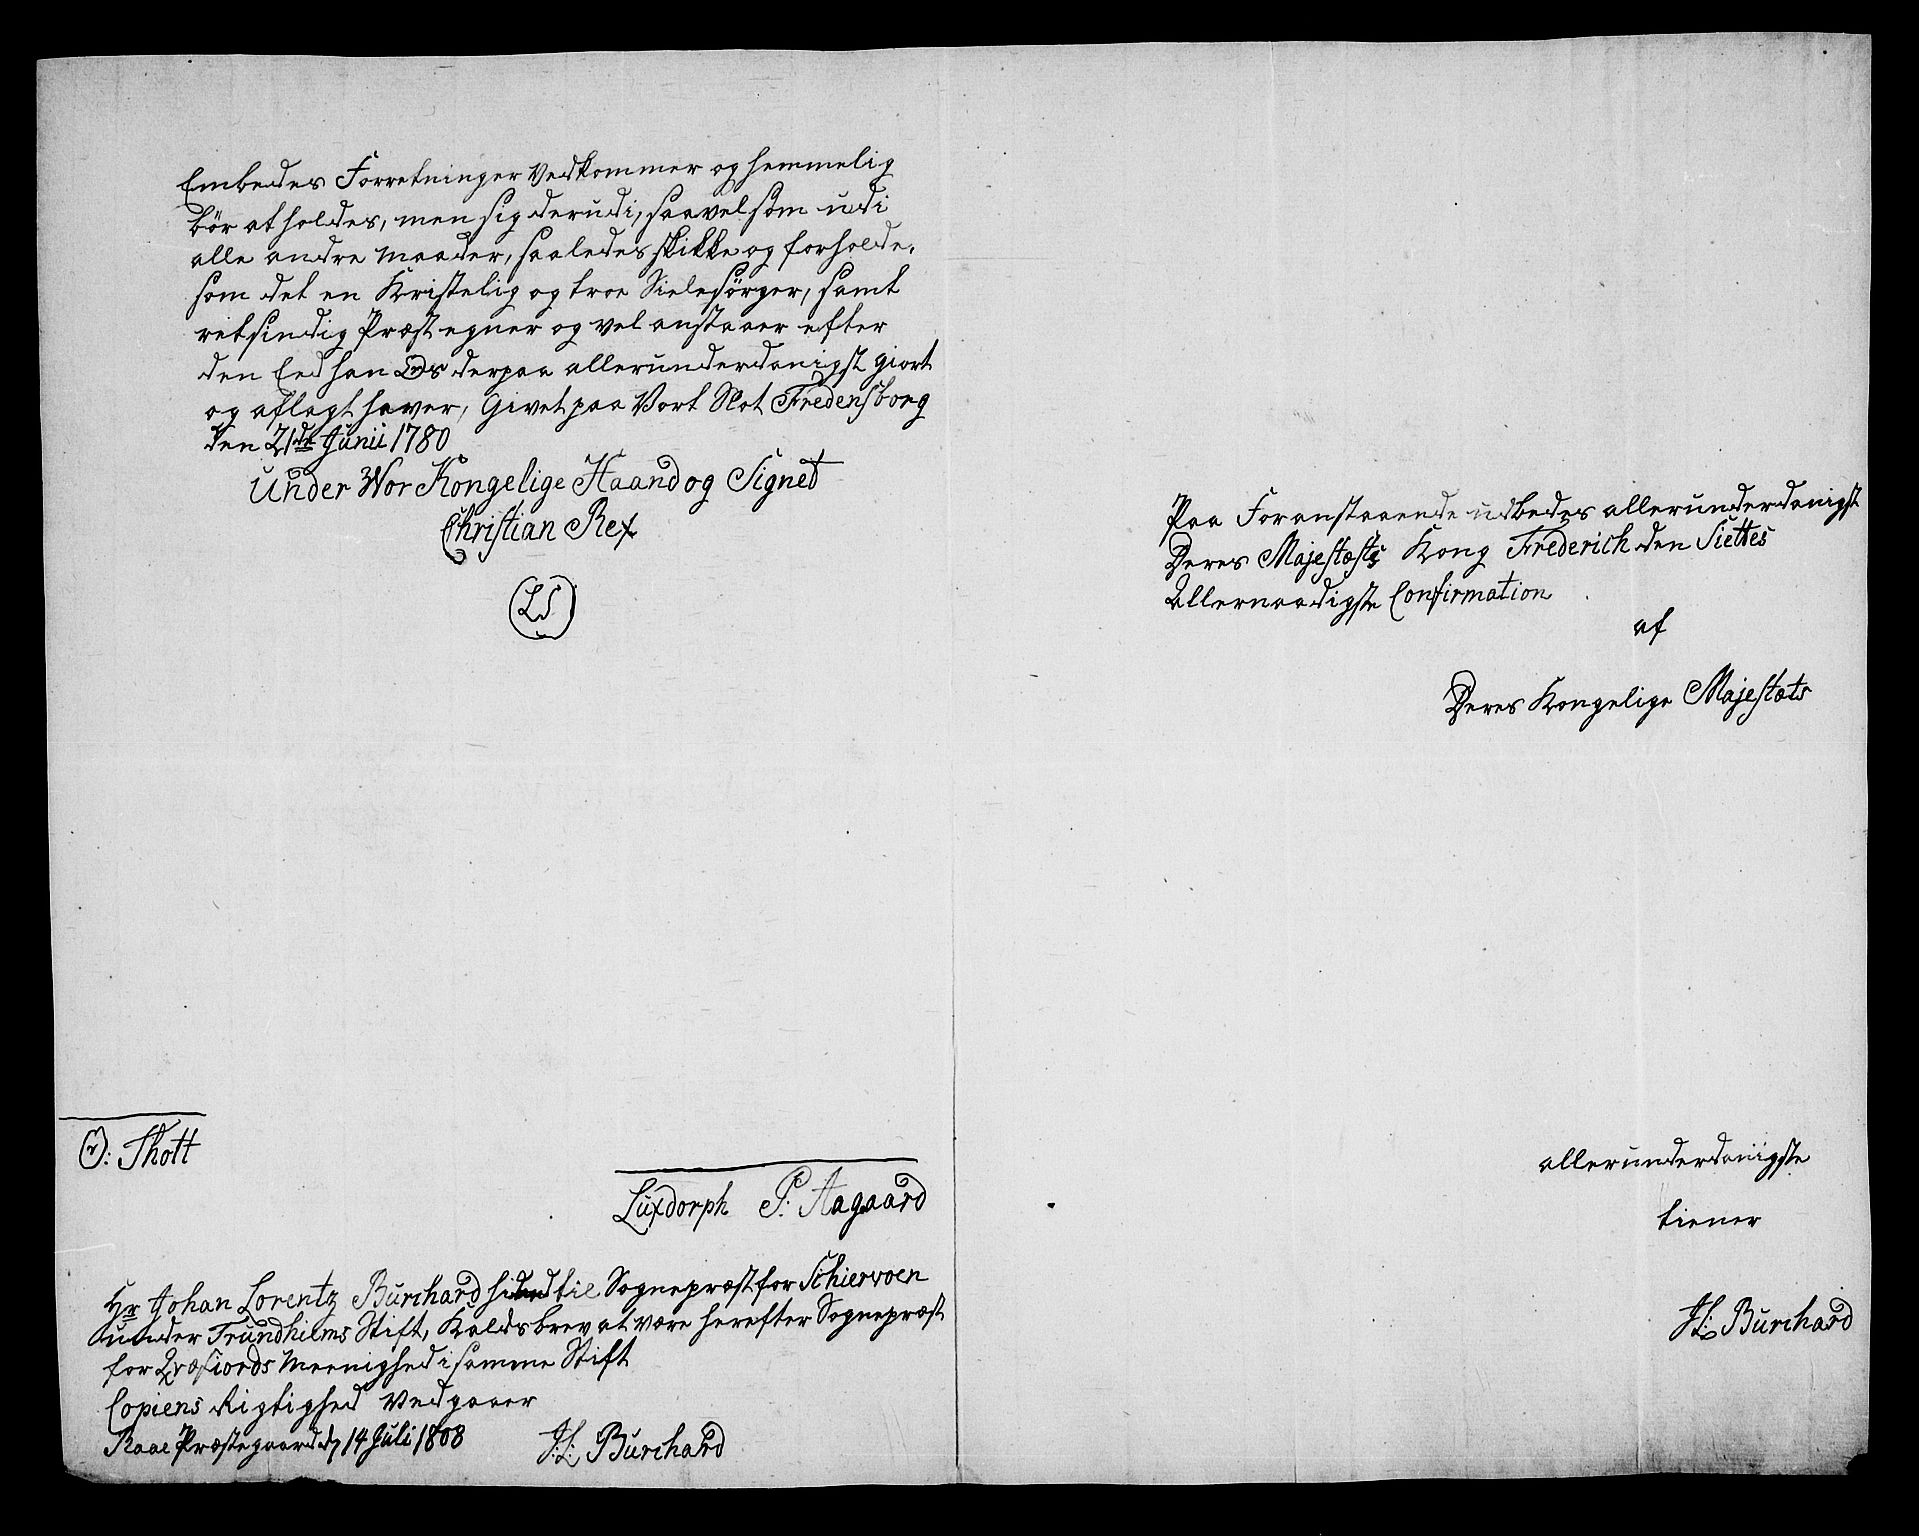 Embedes Forretninger vedkommer og hemmelig
bör at holdes, men sig derudi, saavelsom udi
alle andre Maader, saaledes skikke og forholde,
som det en Kristelig og troe Sielesörger, samt
retsindig Præst egner og vel anstaaer efter
den Eed han Os derpaa allerunderdanigst giort
og aflagt haver, Givet paa Vort Slot Fredensborg
den 21de Junii 1780
Under Wor Kongelige Haand og Signet
Christian Rex
LS
O: Thott
Luxdorph P: Aagaard
Hr Johan Lorentz Burchard hidtil Sognepræst for Schiervoen
under Trundhiems Stift, Kaldsbrev at være herefter Sognepræst
for Qvæfiords Meenighed i samme Stift
Copiens Rigtighed vedgaaer
Raae Præstegaard d 14 Juli 1808 J:L: Burchard
Paa Foranstaaende udbedes allerunderdanigst
Deres Majestæts Kong Frederich den Siettes
Allernaadigste Confirmation
af
Deres Kongelige Majestæts
allerunderdanigste
tiener
JL: Burchard